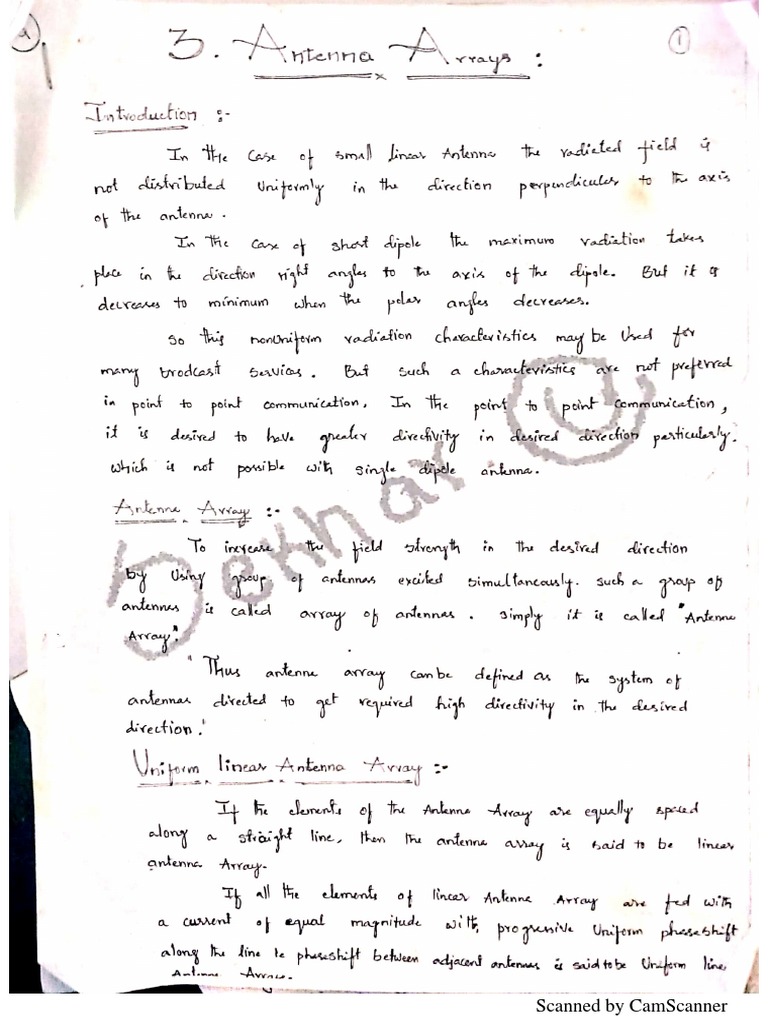 3. Antenna Arrays :
1
Introduction :-
In the case of small linear Antenna the radiated field is
not distributed Uniformly in the direction perpendicular to the axis
of the antenna.
In the case of short dipole the maximum radiation takes
place in the direction right angles to the axis of the dipole. But it is
decreases to minimum when the polar angles decreases.
So this nonuniform radiation characteristics may be used for
many brodcast services. But such a characteristics are not preferred
in point to point communication. In the point to point communication,
it is desired to have greater directivity in desired direction particularly.
which is not possible with single dipole antenna.
Antenna Array :-
To increase the field strength in the desired direction
by using group of antennas excited simultaneously. such a group of
antennas is called array of antennas. Simply it is called "Antenna
Array."
"Thus antenna array can be defined as the system of
antennas directed to get required high directivity in the desired
direction."
Uniform linear Antenna Array :-
If the elements of the Antenna Array are equally spaced
along a straight line, then the antenna array is said to be linear
antenna Array.
If all the elements of linear Antenna Array are fed with
a current of equal magnitude with progressive Uniform phaseshift
along the line ie phaseshift between adjacent antennas is said to be Uniform line
Antenna Array.
Sekhar
Scanned by CamScanner